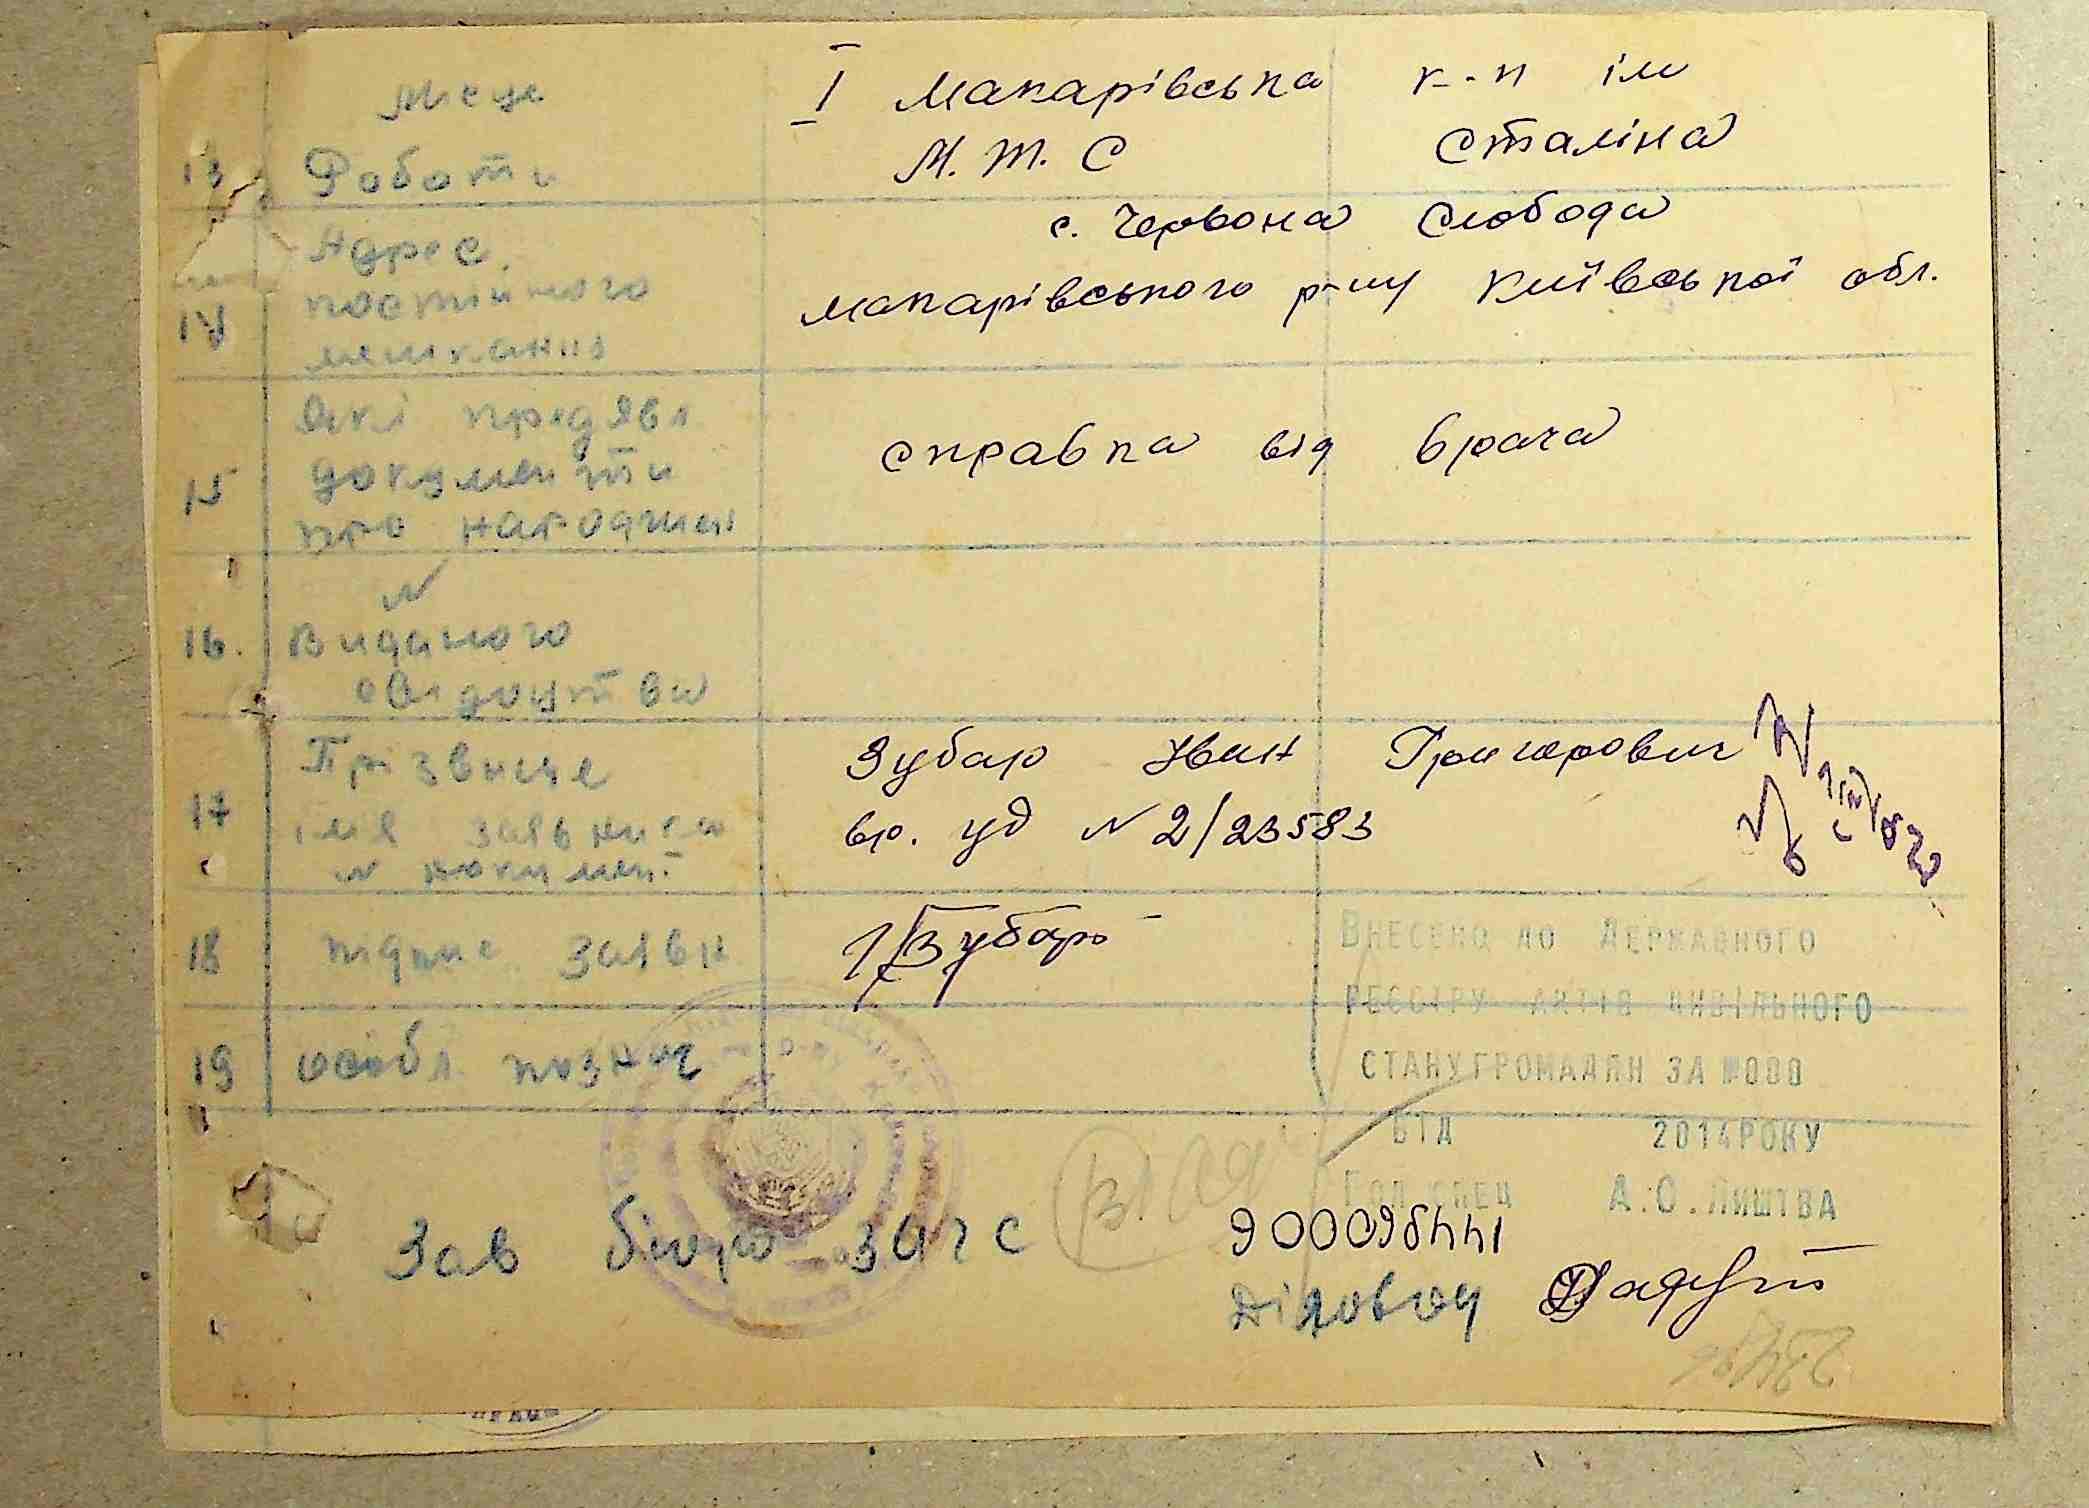 Місце
І Макарівська к-п ім
13 Роботи М.Т.С Сталіна
Адрес с. Червона Слобода
14 постійного Макарівського р-ну Київської обл.
мешкання
Які предявл
15 документи справка від врача
про народжен
№
16. Виданого
свідоцтва
Прізвище Зубар Иван Григорович
17 імя заявника вр. уд №2/23583
№ докумен.
18 підпис заявн Зубар
ВНЕСЕНО ДО ДЕРЖАВНОГО
РЕЄСТРУ АКТІВ ЦИВІЛЬНОГО
19 особл. познач
СТАНУ ГРОМАДЯН ЗА №000
ВІД 2014РОКУ
ГОЛ.СПЕЦ А.О.ЛИШТВА
Зав бюро загс
Діловод